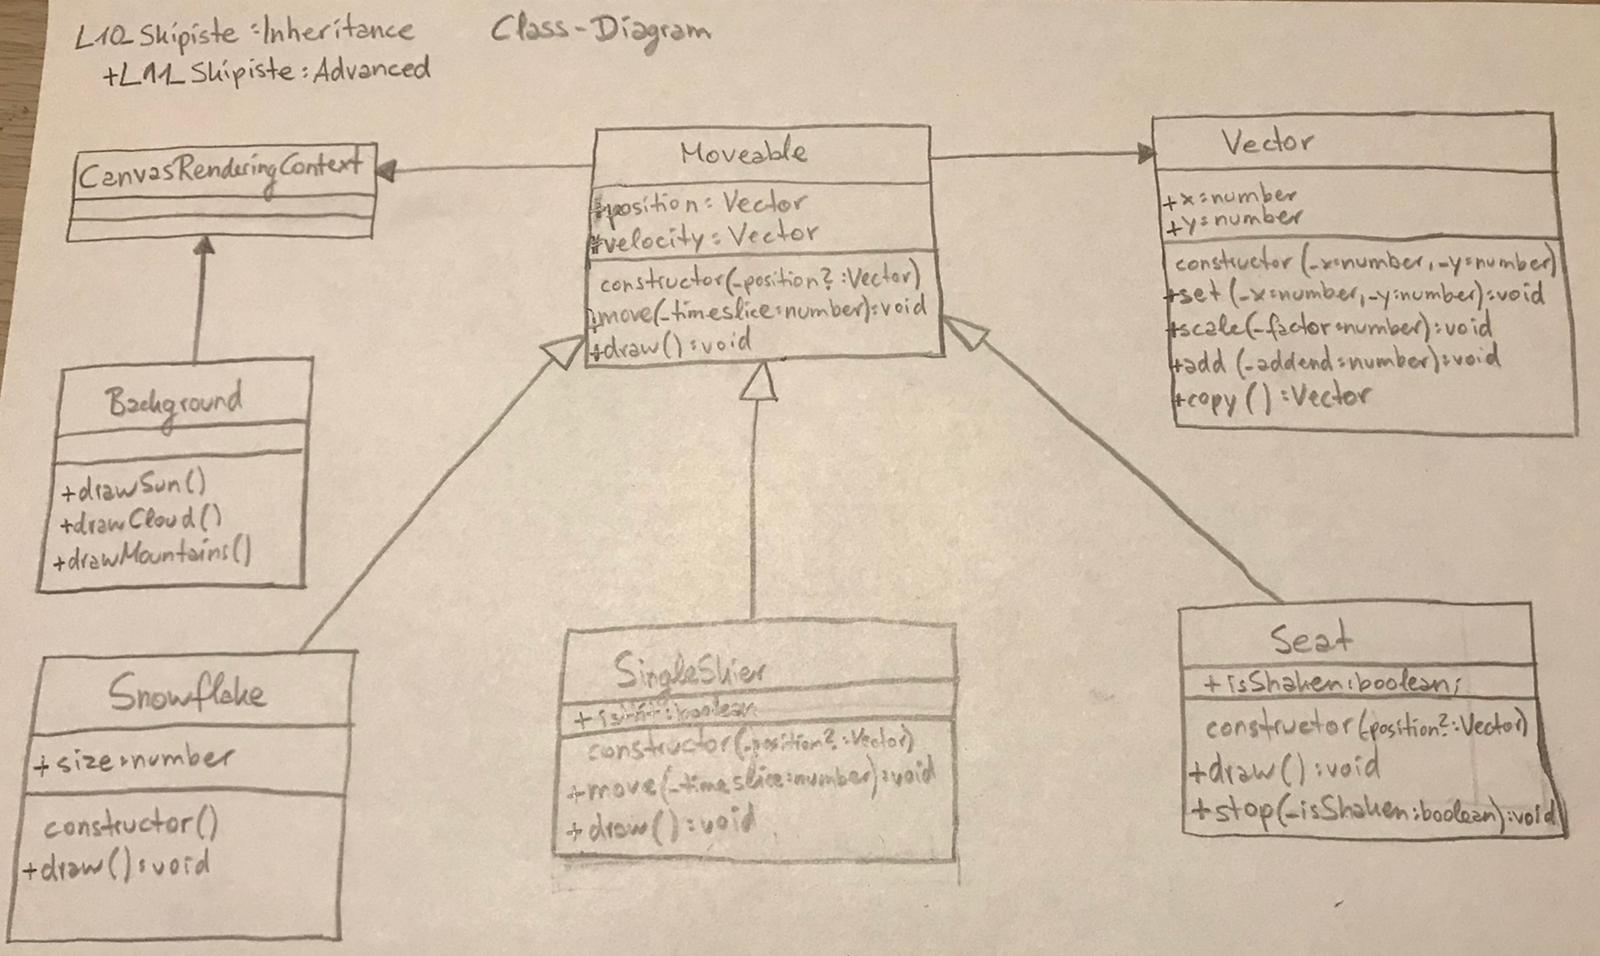 L10_Skipiste:Inheritance
+L11_Skipiste:Advanced
Class-Diagram
CanvasRenderingContext
Moveable
#position: Vector
#velocity: Vector
constructor(_position?:Vector)
+move(_timeslice:number):void
+draw():void
Vector
+x:number
+y:number
constructor(_x:number,_y:number)
+set(_x:number,_y:number):void
+scale(_factor:number):void
+add(_addend:number):void
+copy():Vector
Background
+drawSun()
+drawCloud()
+drawMountains()
Snowflake
+size:number
constructor()
+draw():void
SingleSkier
+isHit:boolean
constructor(_position?:Vector)
+move(_timeslice:number):void
+draw():void
Seat
+isShaken:boolean;
constructor(_position?:Vector)
+draw():void
+stop(_isShaken:boolean):void